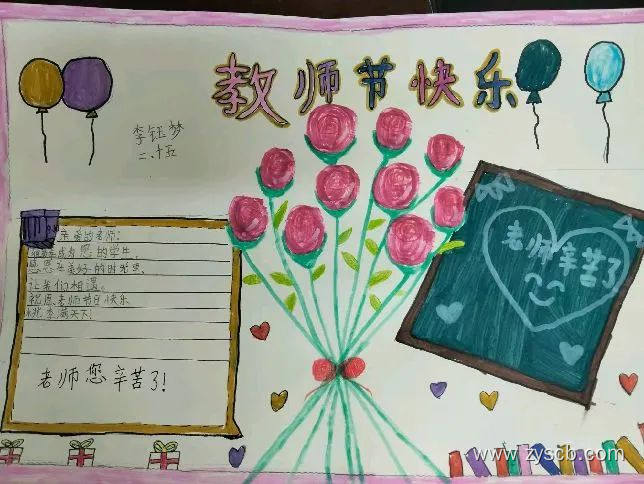 教师节快乐
李钰梦
二、十五
亲爱的老师:
很高兴成为您的学生,
感恩在美好的时光里,
让我们相遇。
祝愿老师节日快乐
桃李满天下!
老师您辛苦了!
老师辛苦了
www.zyscb.com